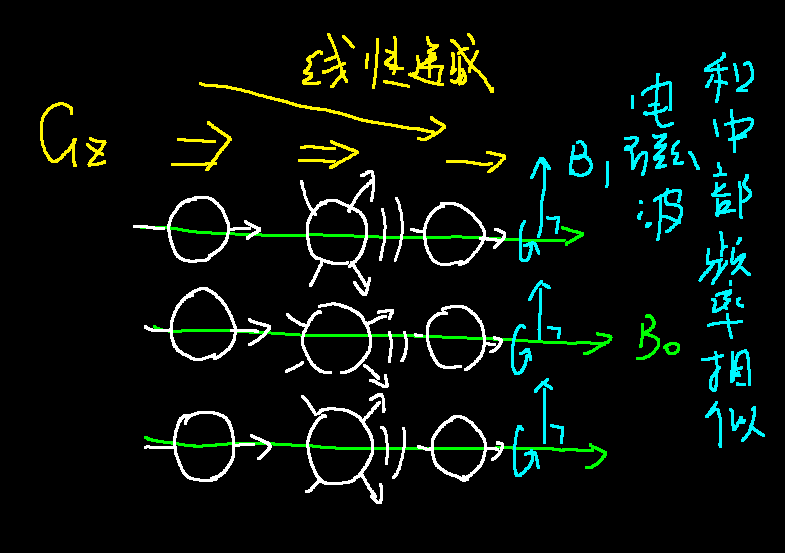 线性递减
Gz
B₁
电磁波
和中部频率相似
B₀